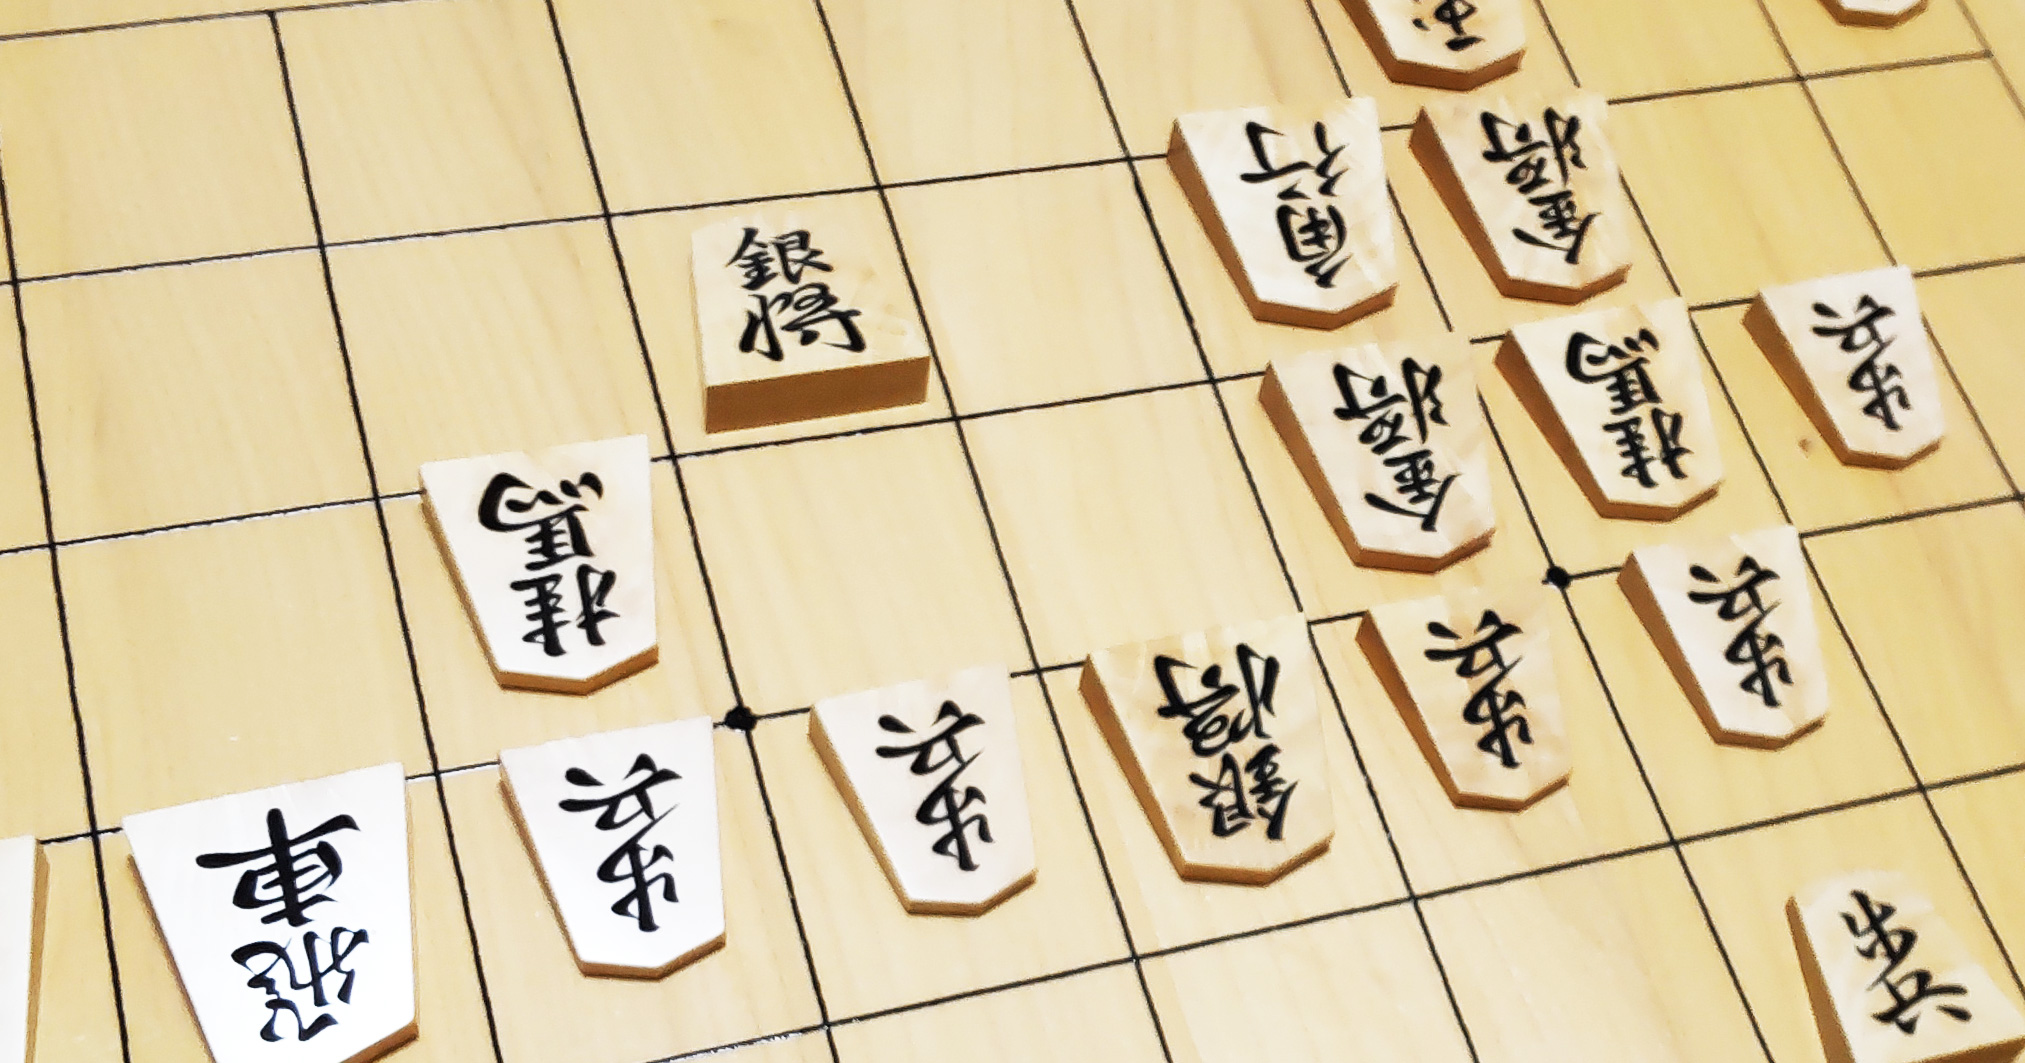 角行
金将
銀将
金将
桂馬
歩兵
桂馬
歩兵
歩兵
銀将
歩兵
歩兵
飛車
歩兵